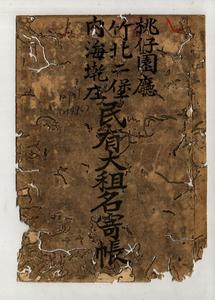 桃仔園廳
竹北二堡
內海墘庄
民有大租名寄帳